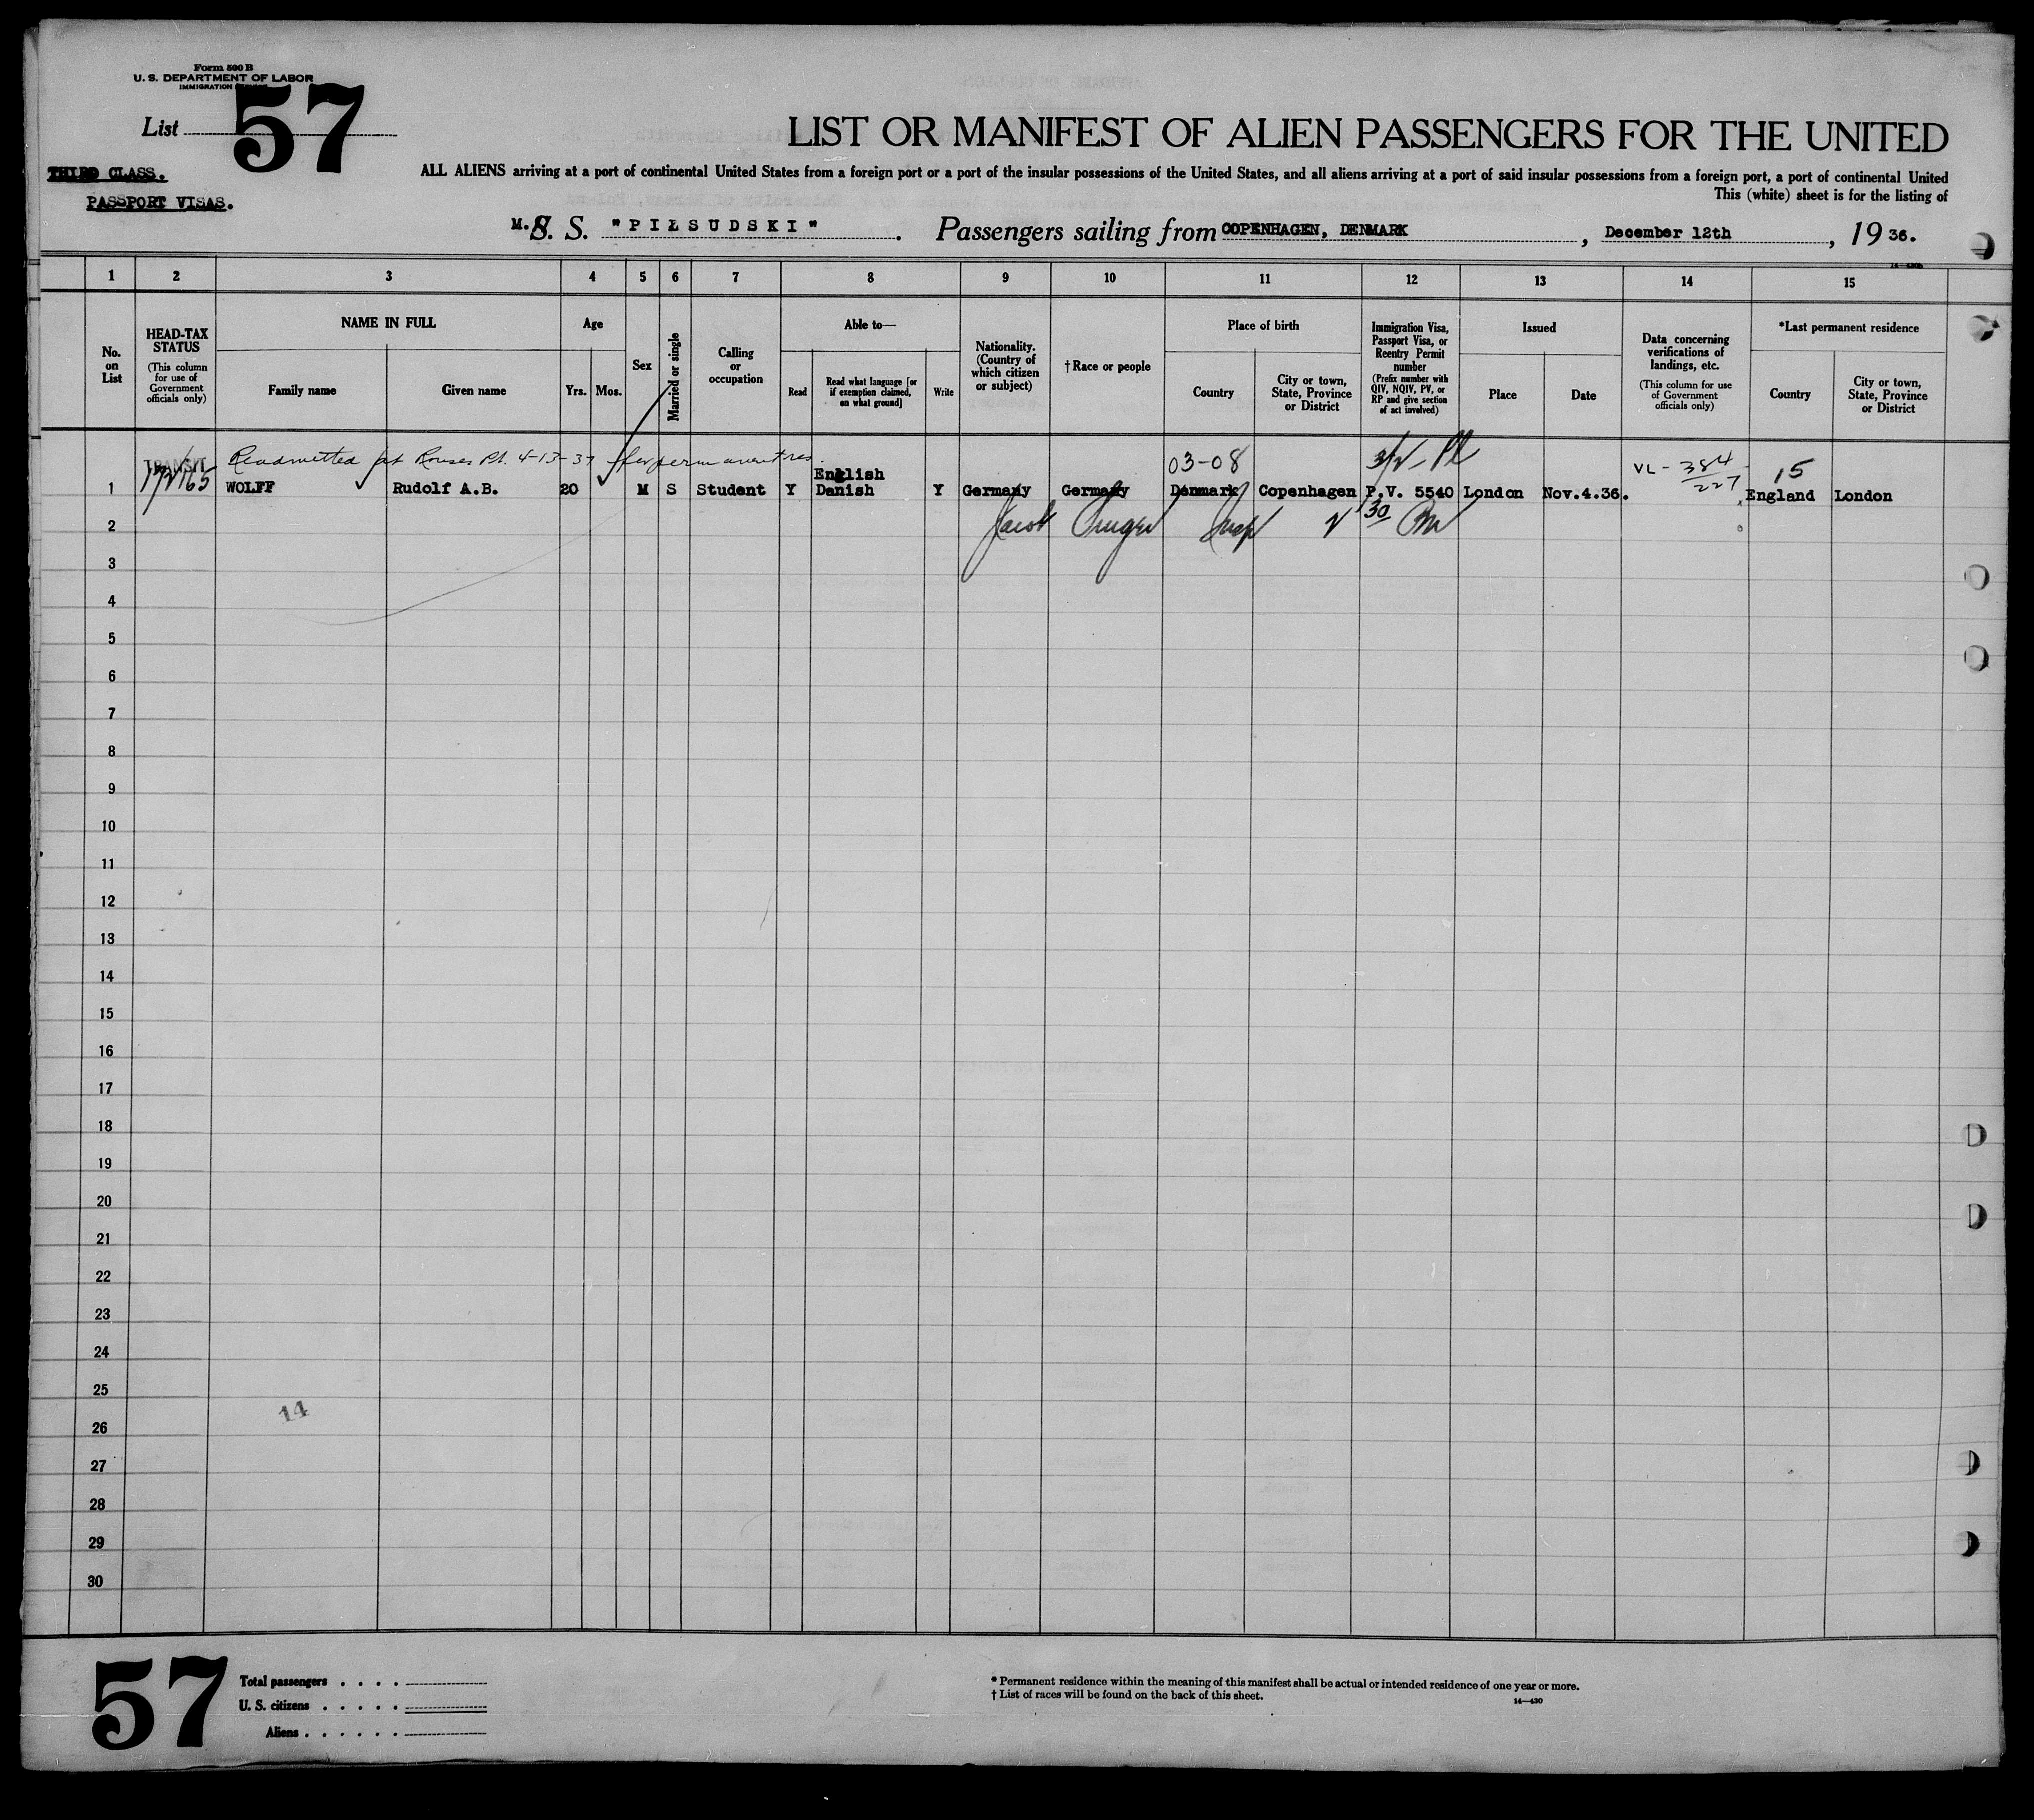 Form 500 B
U. S. DEPARTMENT OF LABOR
IMMIGRATION
List 57
LIST OR MANIFEST OF ALIEN PASSENGERS FOR THE UNITED
THIRD CLASS.
PASSPORT VISAS.
ALL ALIENS arriving at a port of continental United States from a foreign port or a port of the insular possessions of the United States, and all aliens arriving at a port of said insular possessions from a foreign port, a port of continental United
This (white) sheet is for the listing of
M. S. S. "PIŁSUDSKI" . Passengers sailing from COPENHAGEN, DENMARK , December 12th , 19 36.
1 2 3 4 5 6 7 8 9 10 11 12 13 14 15
No. on List
HEAD-TAX STATUS
(This column for use of Government officials only)
NAME IN FULL
Family name
Given name
Age
Yrs.
Mos.
Sex
Married or single
Calling or occupation
Able to—
Read
Read what language [or if exemption claimed, on what ground]
Write
Nationality. (Country of which citizen or subject)
†Race or people
Place of birth
Country
City or town, State, Province or District
Immigration Visa, Passport Visa, or Reentry Permit number
(Prefix number with QIV, NQIV, PV, or RP and give section of act involved)
Issued
Place
Date
Data concerning verifications of landings, etc.
(This column for use of Government officials only)
*Last permanent residence
Country
City or town, State, Province or District
TRANSIT
Readmitted at Rouses Pt. 4-13-37 for permanent res.
03-08
VL - 384
227
15
English
1 WOLFF Rudolf A.B. 20 M S Student Y Danish Y Germany Germany Denmark Copenhagen P.V. 5540 London Nov.4.36. England London
2 Jacob 30
3
4
5
6
7
8
9
10
11
12
13
14
15
16
17
18
19
20
21
22
23
24
25
14
26
27
28
29
30
57
Total passengers . . . .
U. S. citizens . . . . .
Aliens . . . . . .
* Permanent residence within the meaning of this manifest shall be actual or intended residence of one year or more.
† List of races will be found on the back of this sheet.
14—430